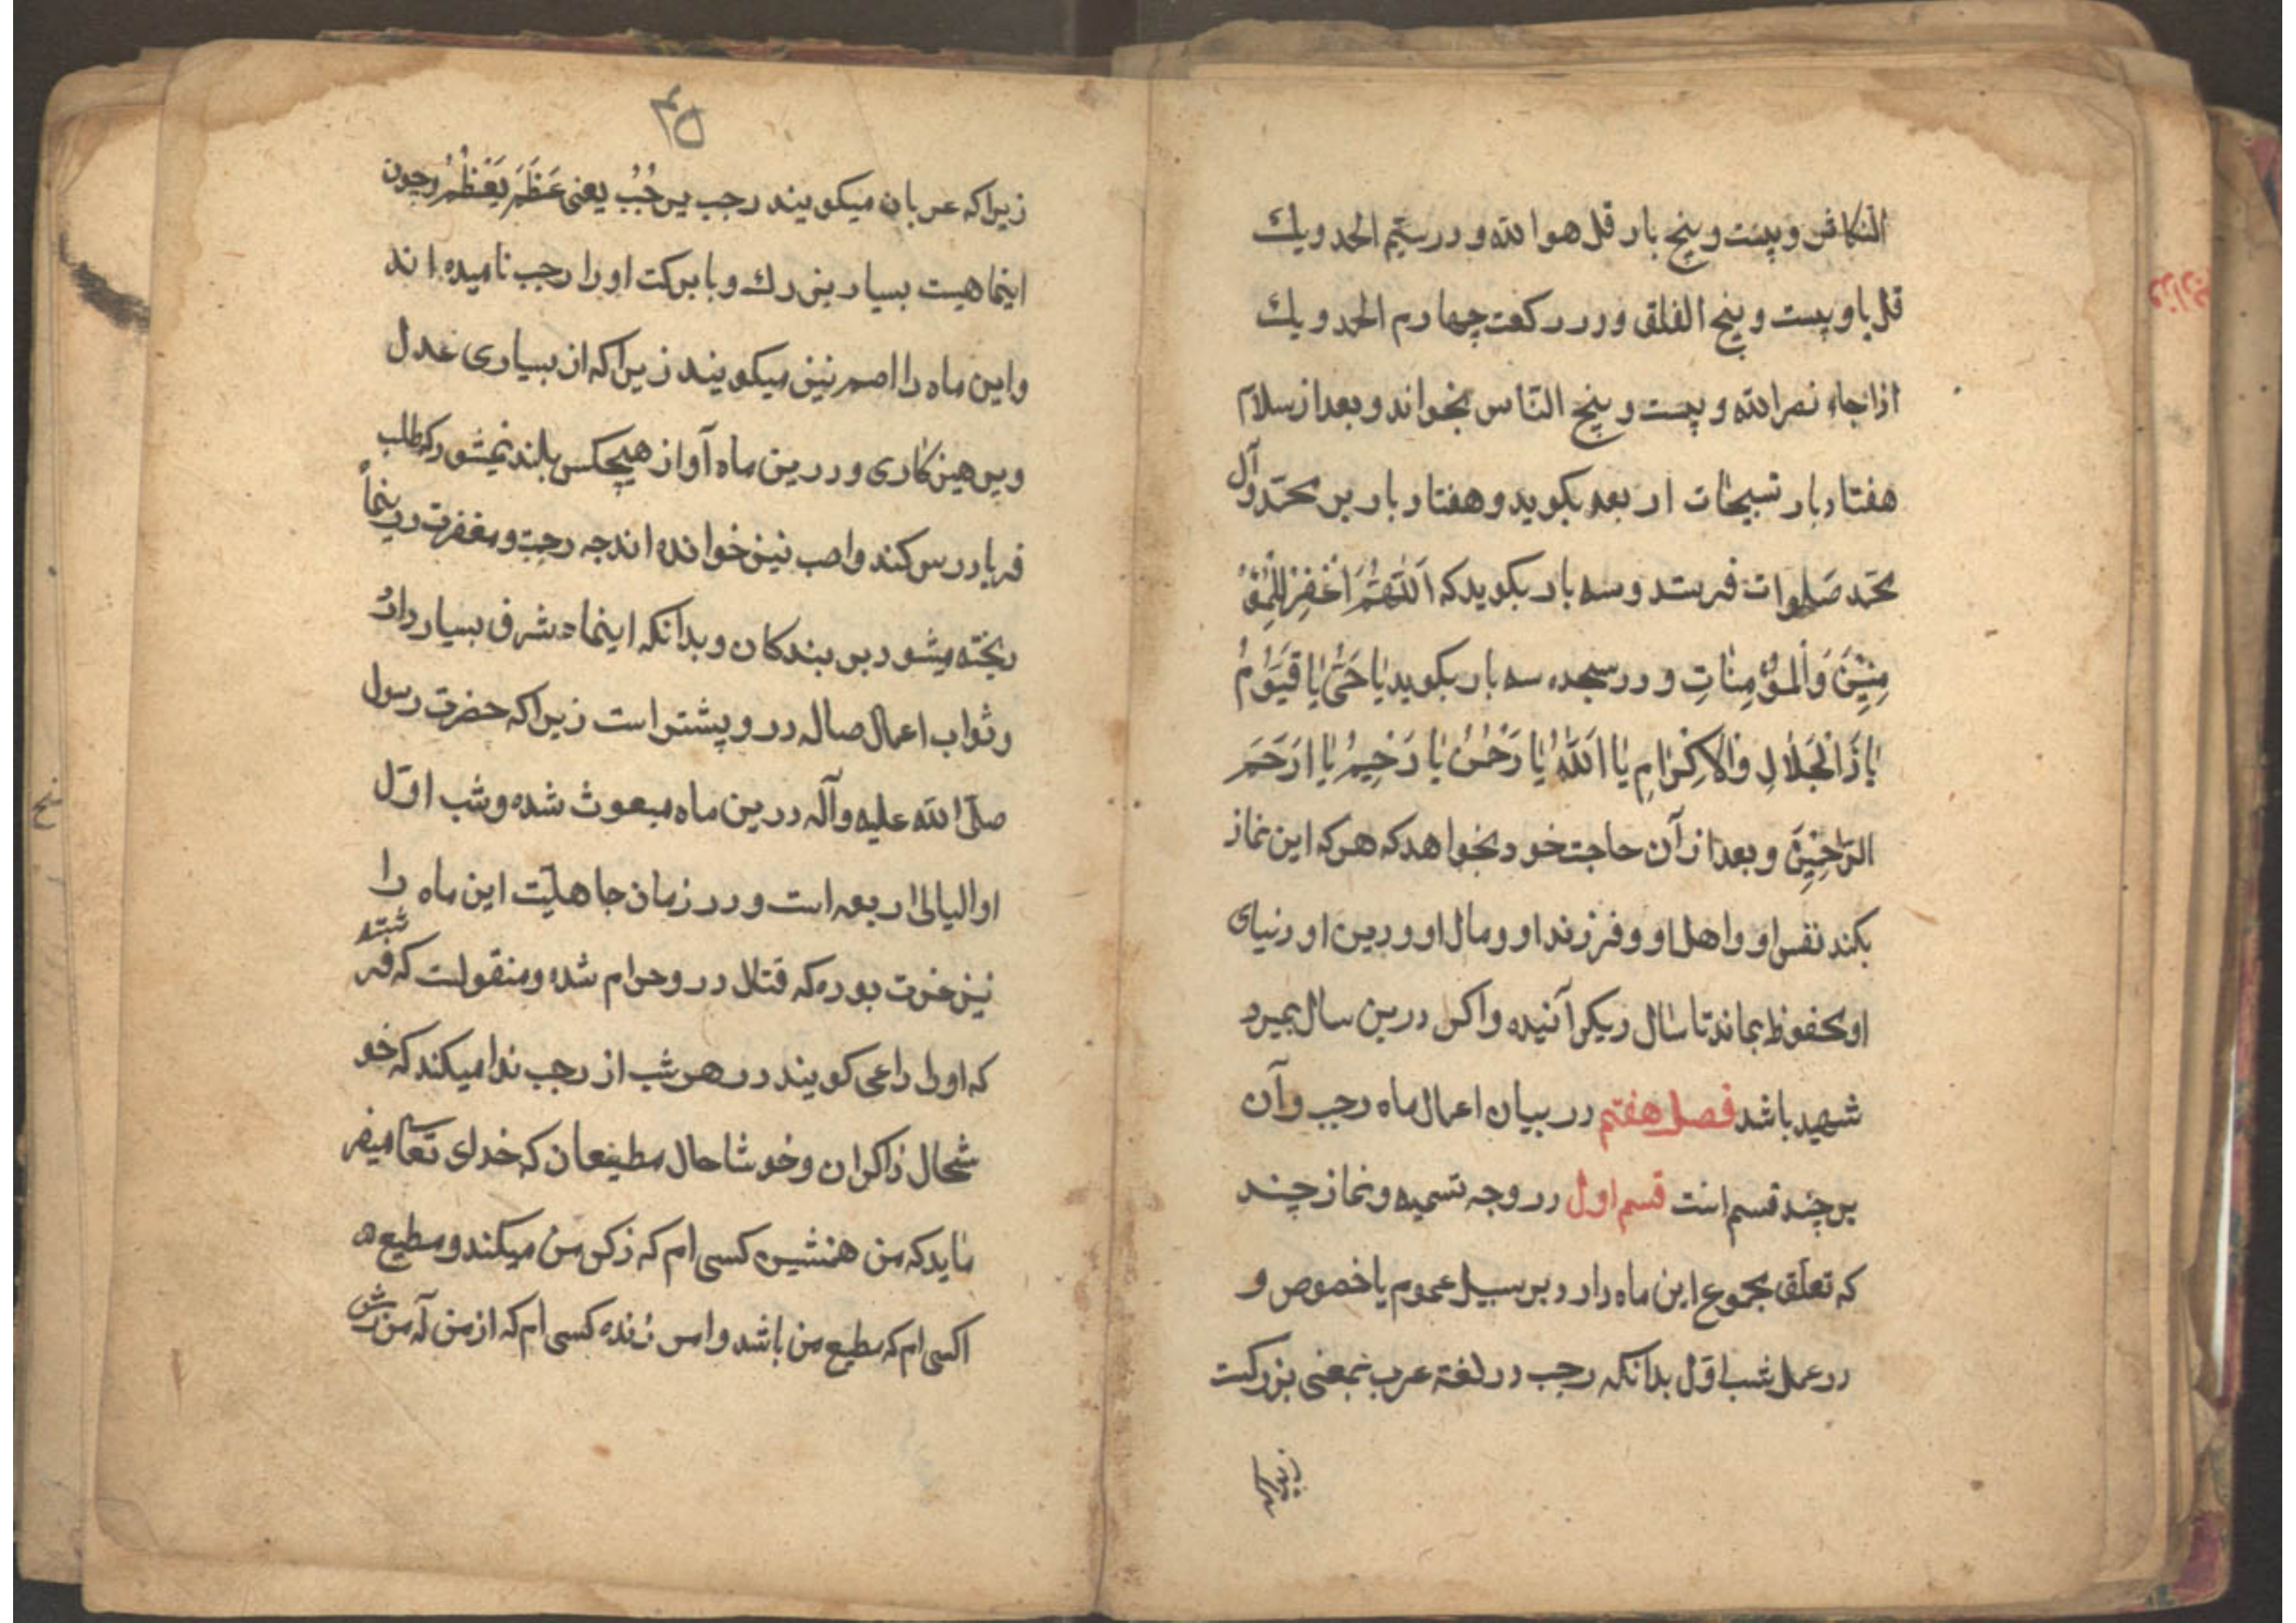 التکاثر و بیست و پنج بار قل هو الله و در سیّم الحمد و یك
قل یا و بیست و پنج الفلق و در رکعت چهارم الحمد و یك
اذا جاء نصر الله و بیست و پنج النّاس بخواند و بعد از سلام
هفتاد بار تسبیحات اربعه بکوید و هفتاد بار بر محمّد و آل
محمّد صَلوات فرستد و سه بار بکوید که اَللّٰهُمَّ اغْفِرْ لِلْمُؤْ
مِنِیْنَ وَالْمُؤْمِنٰاتِ و در سجده سه بار بکوید یٰا حَیُّ یٰا قَیُّوْمُ
یٰا ذَاالْجَلٰالِ وَالْاِکْرٰامِ یٰا اَللّٰهُ یٰا رَحْمٰنُ یٰا رَحِیمُ یٰا اَرْحَمَ
الرّٰاحِمِیْنَ و بعد از آن حاجت خود بخواهد که هر که این نماز
بکند نفس او و اهل او و فرزند او و مال او و دین او و دنیای
او محفوظ بماند تا سٰال دیکر آئنده و اکر درین سال بمیرد
شهید باشد فصل هفتم در بیان اعمال ماه رجب و آن
بر چند قسم است قسم اول در وجه تسمیه و نماز چند
که تعلّق بمجموع این ماه دارد بر سبیل عموم یا خصوص و
در عمل شب اوّل بدانکه رجب در لغة عرب بمعنی بزرکست
زیراکه
۴۵
زیرا که عربان میکویند رجب یرجُبُ یعنی عَظَمَ یَعْظُمُ و چون
اینماهیست بسیار بزرك و با برکت او را رجب نامیده اند
و این ماه را اصم نیز میکویند زیرا که از بسیاری عدل
و پرهیزکاری و درین ماه آواز هیچکس بلند نمیشود که طلب
فریاد رس کند و اصب نیز خوانده اند چه رحمت و مغفرت درینماه
ریخته میشود بر بندکان و بدانکه اینماه شرف بسیار دارد
و ثواب اعمال صاله درو پیشتر است زیرا که حضرت رسول
صلّی الله علیه وآله درین ماه مبعوث شده و شب اوّل
او الیالی اربعه است و در زمان جاهلیّت این ماه را
نیز عزت بوده که قتال درو حرام شده و منقولست که فرشته
که او را داعی کویند در هر شب از رجب ندا میکند که خو
شحال ذاکران و خوشا حال مطیعان که خدای تعالی میفر
ماید که من همنشین کسی ام که ذکر من میکند و مطیع ه
اکسی ام که مطیع من باشد و امر زنده کسی ام که از من آمرزش